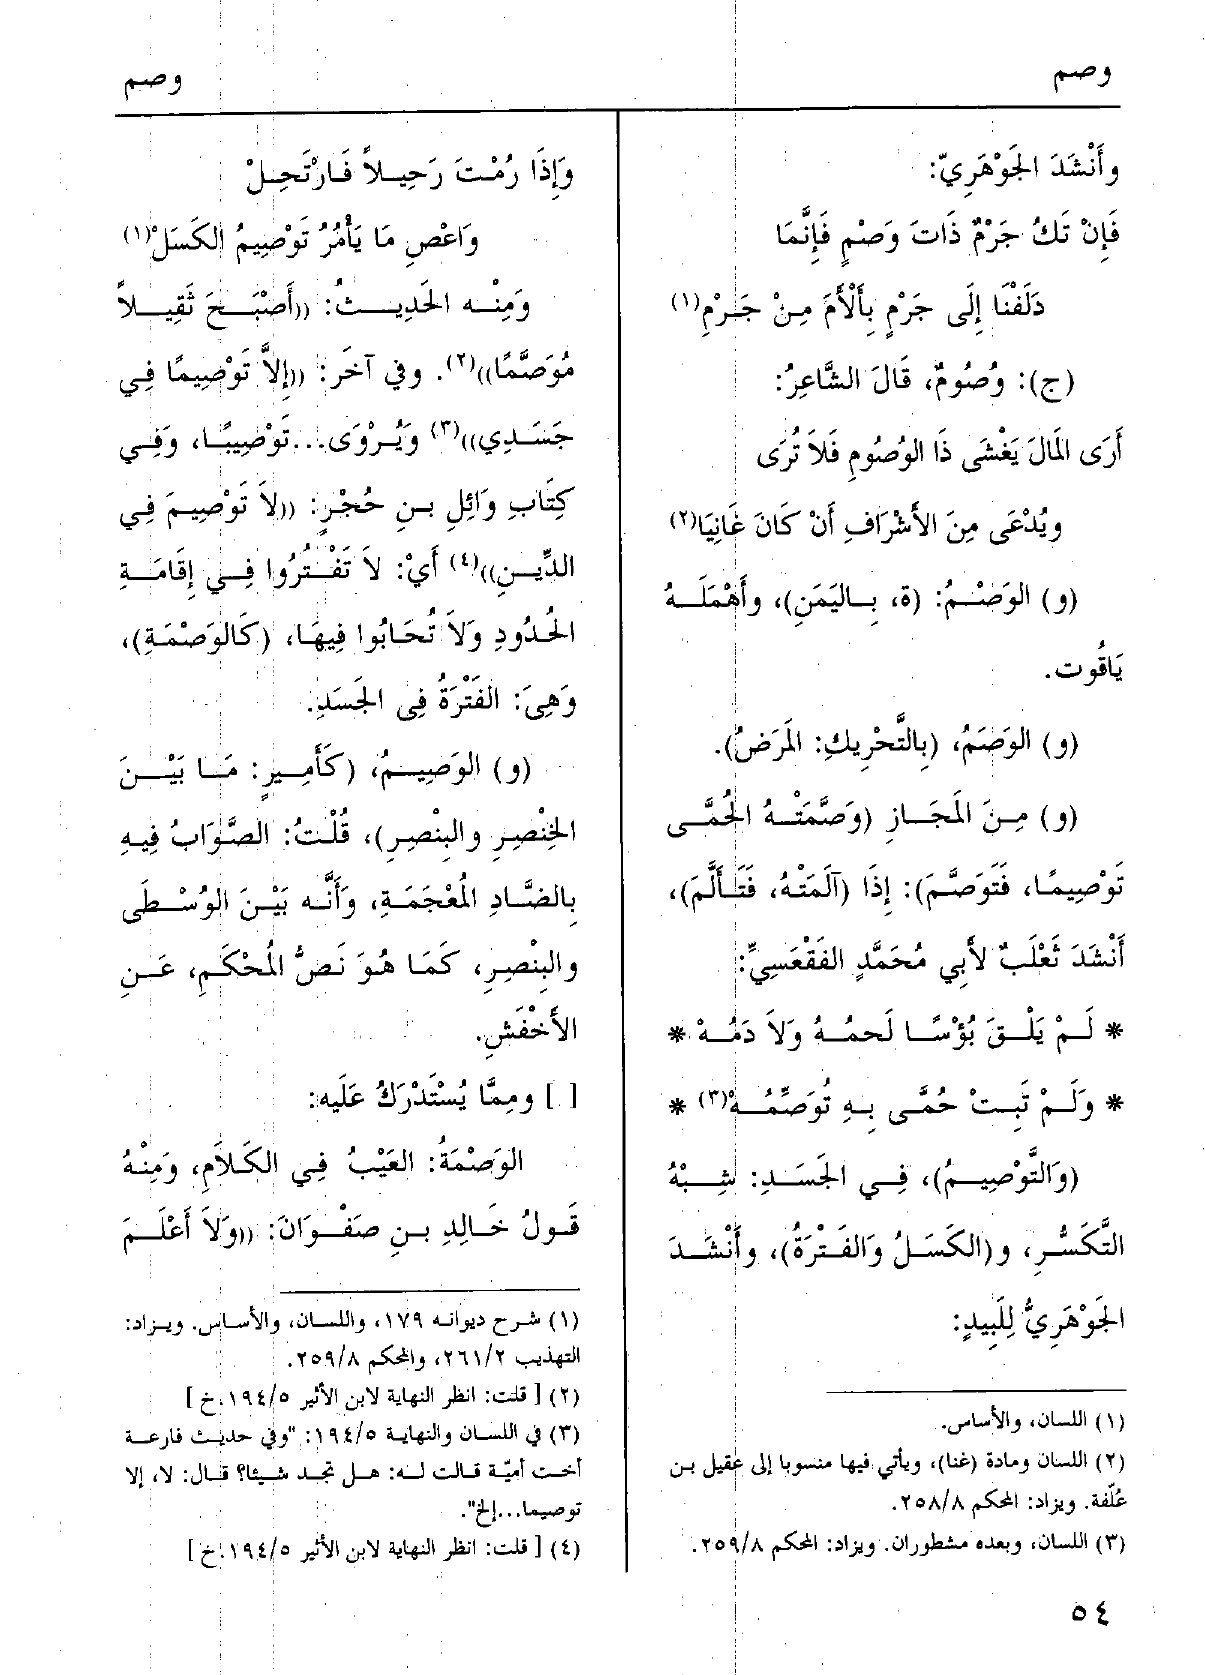 وصم
وصم
وأَنْشَدَ الجَوْهَرِيّ:
فَإِنْ تَكُ جَرْمٌ ذَاتَ وَصْمٍ فَإِنَّمَا
دَلَفْنَا إِلَى جَرْمٍ بِأَلْأَمَ مِنْ جَرْمِ(١)
(ج): وُصُومٌ، قَالَ الشَّاعِرُ:
أَرَى المَالَ يَغْشَى ذَا الوُصُومِ فَلاَ تُرَى
ويُدْعَى مِنَ الأَشْرَافِ أَنْ كَانَ غَانِيَا(٢)
(و) الوَصْمُ: (ة، بِاليَمَنِ)، وأَهْمَلَهُ
يَاقُوت.
(و) الوَصَمُ، (بِالتَّحْرِيكِ: المَرَضُ).
(و) مِنَ المَجَازِ (وَصَّمَتْهُ الحُمَّى
تَوْصِيمًا، فَتَوَصَّمَ): إِذَا (آلَمَتْهُ، فَتَأَلَّمَ)،
أَنْشَدَ ثَعْلَبٌ لأَبِي مُحَمَّدٍ الفَقْعَسِيِّ:
* لَمْ يَلْقَ بُؤْسًا لَحمُهُ وَلاَ دَمُهْ *
* وَلَمْ تَبِتْ حُمَّى بِهِ تُوَصِّمُهْ(٣) *
(وَالتَّوْصِيمُ)، فِي الجَسَدِ: شِبْهُ
التَّكَسُّرِ، و(الكَسَلُ وَالفَتْرَةُ)، وأَنْشَدَ
الجَوْهَرِيُّ لِلَبِيدٍ:
(١) اللسان، والأساس.
(٢) اللسان ومادة (غنا)، ويأتي فيها منسوبا إلى عقيل بن
عُلّفة. ويزاد: المحكم ٢٥٨/٨.
(٣) اللسان، وبعده مشطوران. ويزاد: المحكم ٢٥٩/٨.
وَإِذَا رُمْتَ رَحِيلاً فَارْتَحِلْ
وَاعْصِ مَا يَأْمُرُ تَوْصِيمُ الكَسَلْ(١)
وَمِنْه الحَدِيثُ: ((أَصْبَحَ ثَقِيلاً
مُوَصَّمًا))(٢). وفي آخَر: ((إِلاَّ تَوْصِيمًا فِي
جَسَدِي))(٣) وَيُرْوَى...تَوْصِيبًا، وَفِي
كِتَابِ وَائِلِ بنِ حُجْرٍ: ((لاَ تَوْصِيمَ فِي
الدِّينِ))(٤) أَيْ: لاَ تَفْتُرُوا فِي إِقَامَةِ
الحُدُودِ وَلاَ تُحَابُوا فِيهَا، (كَالوَصْمَةِ)،
وَهِيَ: الفَتْرَةُ فِي الجَسَدِ.
(و) الوَصِيمُ، (كَأَمِيرٍ: مَا بَيْنَ
الخِنْصِرِ والبِنْصِرِ)، قُلْتُ: الصَّوَابُ فِيهِ
بِالضَّادِ المُعْجَمَةِ، وَأَنَّه بَيْنَ الوُسْطَى
والبِنْصِرِ، كَمَا هُوَ نَصُّ المُحْكَمِ، عَنِ
الأَخْفَشِ.
[ ] ومِمَّا يُسْتَدْرَكُ عَلَيه:
الوَصْمَةُ: العَيْبُ فِي الكَلاَمِ، وَمِنْهُ
قَولُ خَالِدِ بنِ صَفْوَانَ: ((وَلاَ أَعْلَمَ
(١) شرح ديوانه ١٧٩، واللسان، والأساس. ويزاد:
التهذيب ٢٦١/٢، والمحكم ٢٥٩/٨.
(٢) [ قلت: انظر النهاية لابن الأثير ١٩٤/٥.خ ]
(٣) في اللسان والنهاية ١٩٤/٥: "وفي حديث فارعة
أخت أميّة قالت له: هل تجد شيئا؟ قال: لا، إلا
توصيما...إلخ".
(٤) [ قلت: انظر النهاية لابن الأثير ١٩٤/٥.خ ]
٥٤